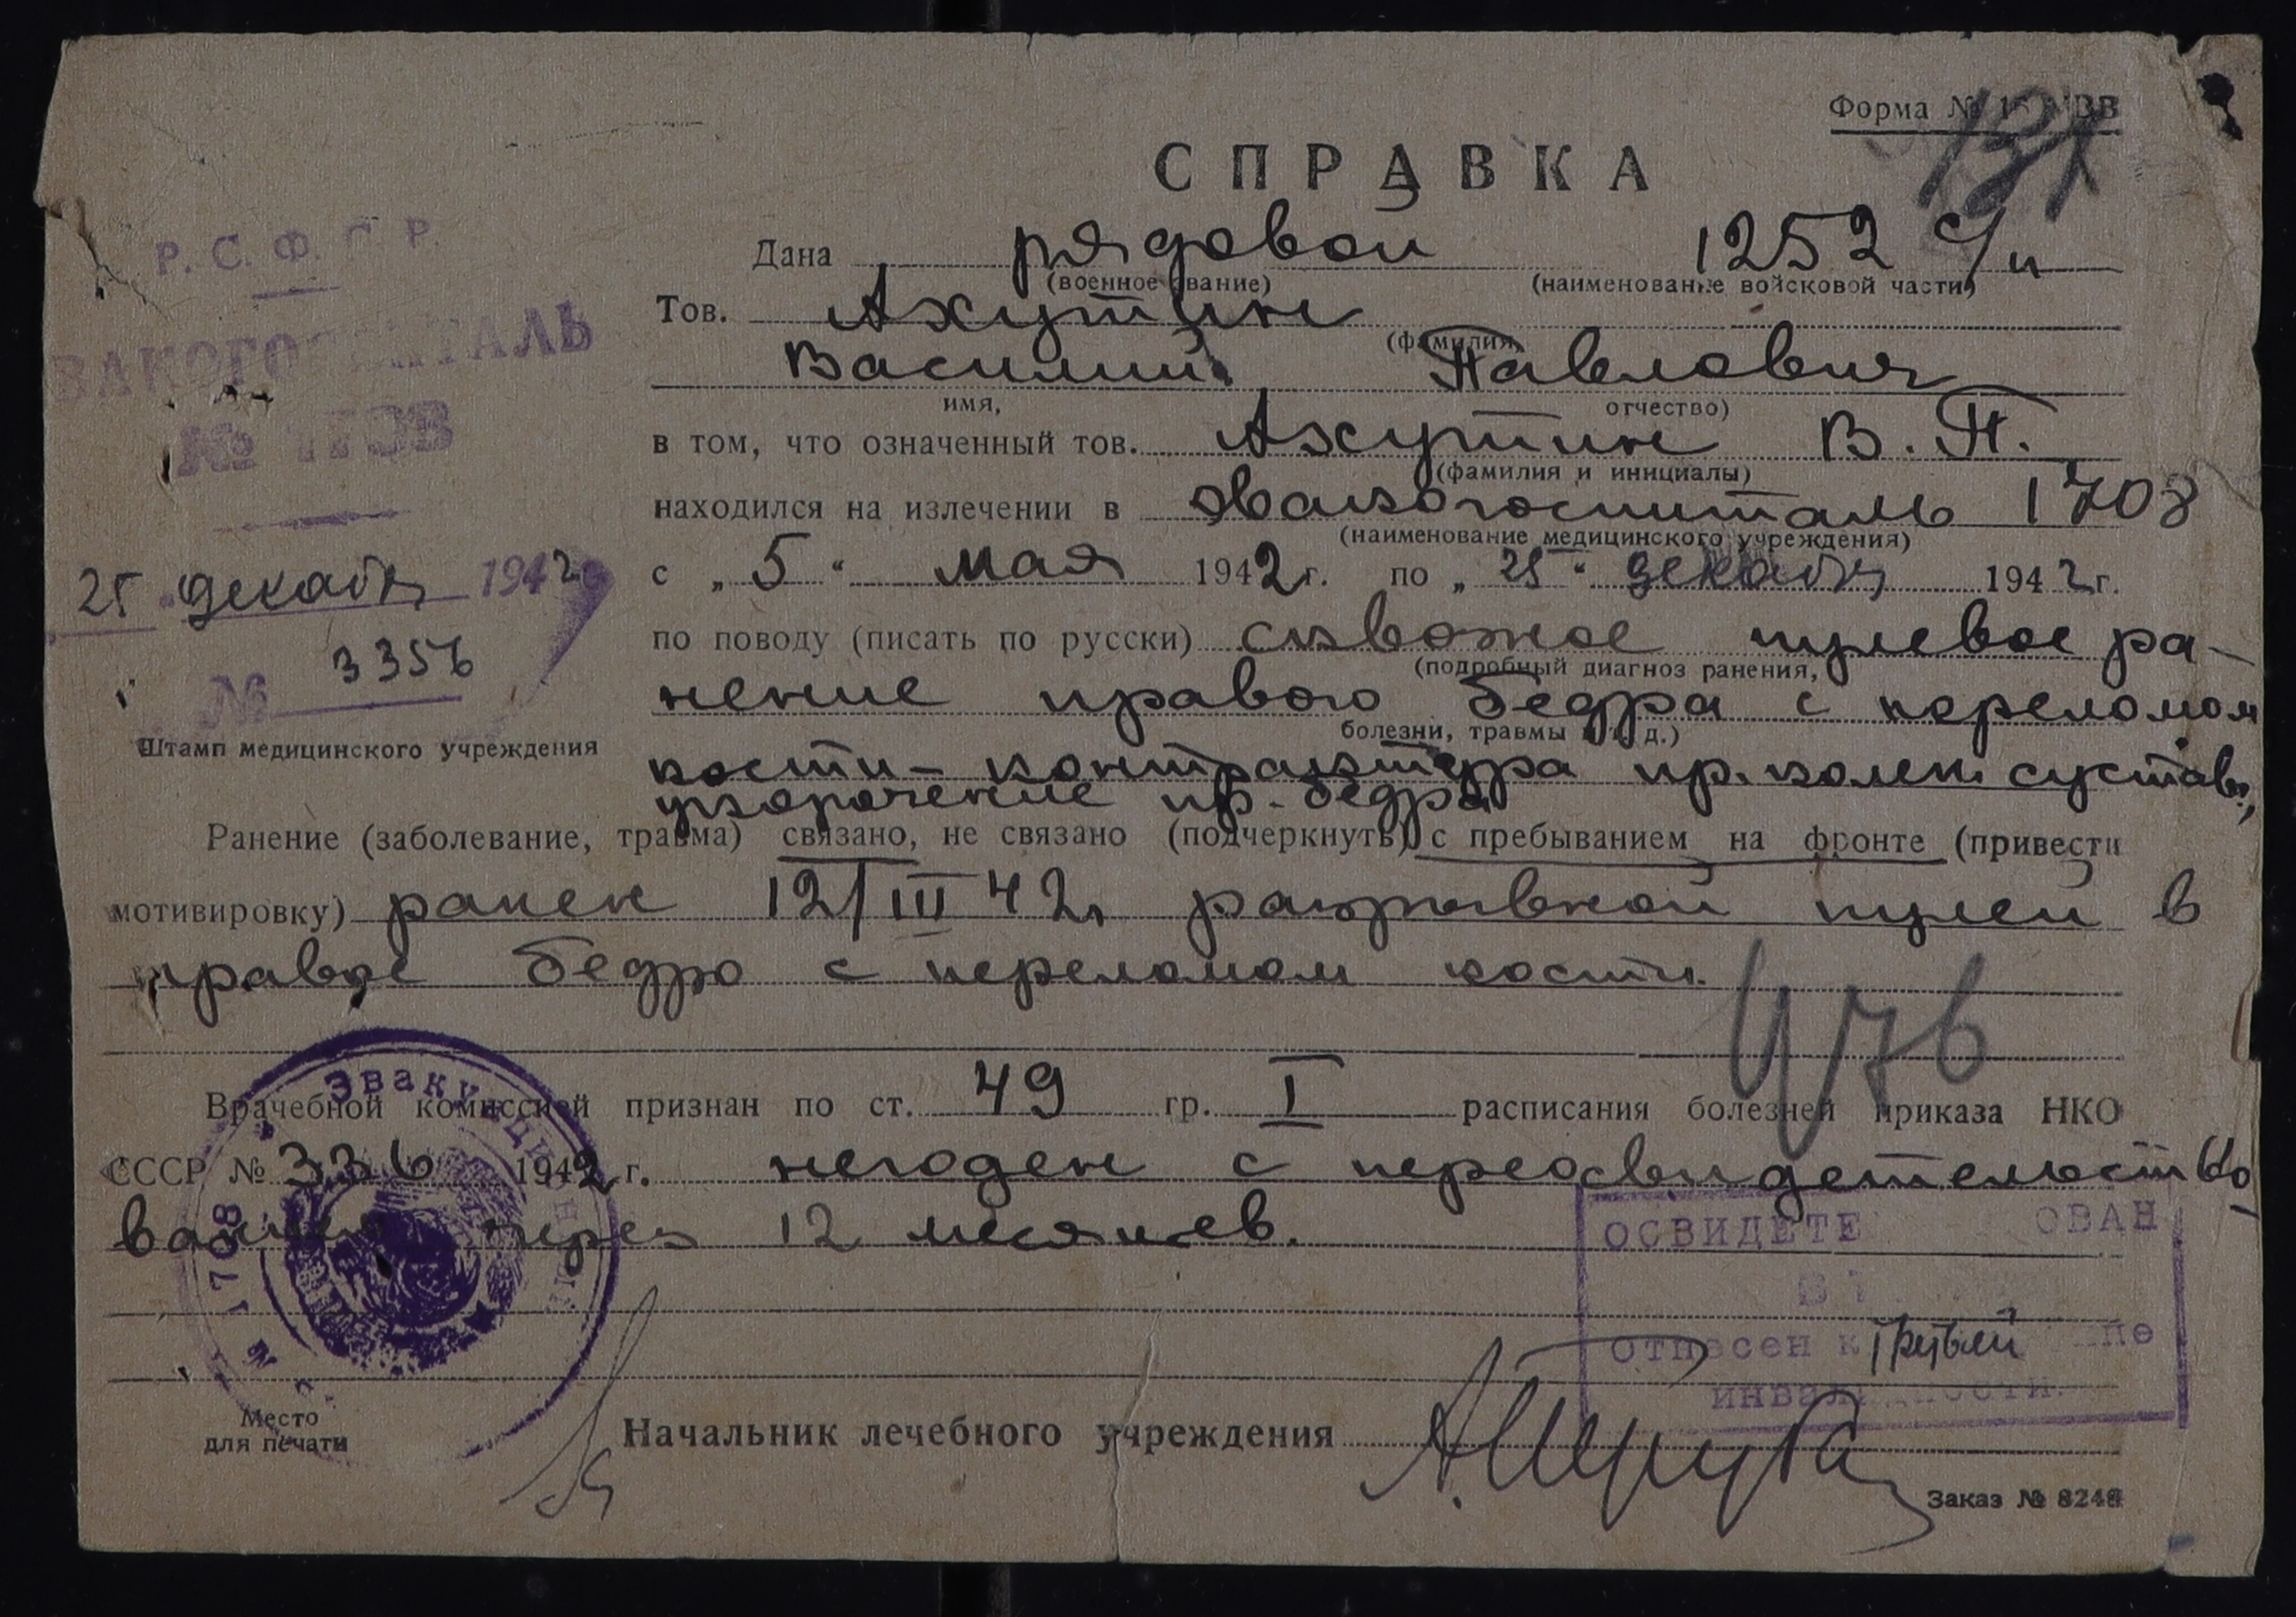 Форма №
131
СПРАВКА
Р. С. Ф. С. Р.
Дана рядовой 1252 с/п
(военное звание) (наименование войсковой части)
Тов. Ахутин
(фамилия,
ЭВАКОГОСПИТАЛЬ
Василий Павлович
имя, отчество)
№ 1708
в том, что означенный тов. Ахутин В. П.
(фамилия и инициалы)
находился на излечении в эвакогоспиталь 1708
(наименование медицинского учреждения)
с „5“ мая 1942 г. по „25“ декабря 1942 г.
25 декабря 1942
по поводу (писать по русски) сквозное пулевое ра-
(подробный диагноз ранения,
№ 3356
нение правого бедра с переломом
болезни, травмы и т. д.)
Штамп медицинского учреждения
кости - контрактура пр. колен. сустава,
укорочение пр. бедра
Ранение (заболевание, травма) связано, не связано (подчеркнуть) с пребыванием на фронте (привести
мотивировку) ранен 12/III 42г разрывной пулей в
правое бедро с переломом кости.
476
Врачебной комиссией признан по ст. 49 гр. I расписания болезней приказа НКО
СССР № 336 1942 г. негоден с переосвидетельство-
ванием через 12 месяцев.
Эвакуацион
№ 1708
ОСВИДЕТЕ ОВАН
отнесен к третьей
инвалидности.
Место
для печати
Начальник лечебного учреждения
Заказ № 8248